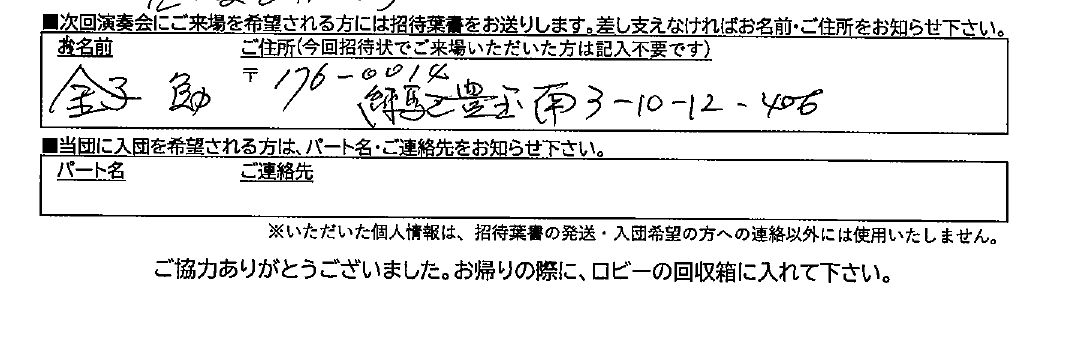 ■次回演奏会にご来場を希望される方には招待葉書をお送りします。差し支えなければお名前・ご住所をお知らせ下さい。
お名前 ご住所(今回招待状でご来場いただいた方は記入不要です)
金子 〒176-0014
練馬区豊玉南3-10-12-406
■当団に入団を希望される方は、パート名・ご連絡先をお知らせ下さい。
パート名 ご連絡先
※いただいた個人情報は、招待葉書の発送・入団希望の方への連絡以外には使用いたしません。
ご協力ありがとうございました。お帰りの際に、ロビーの回収箱に入れて下さい。